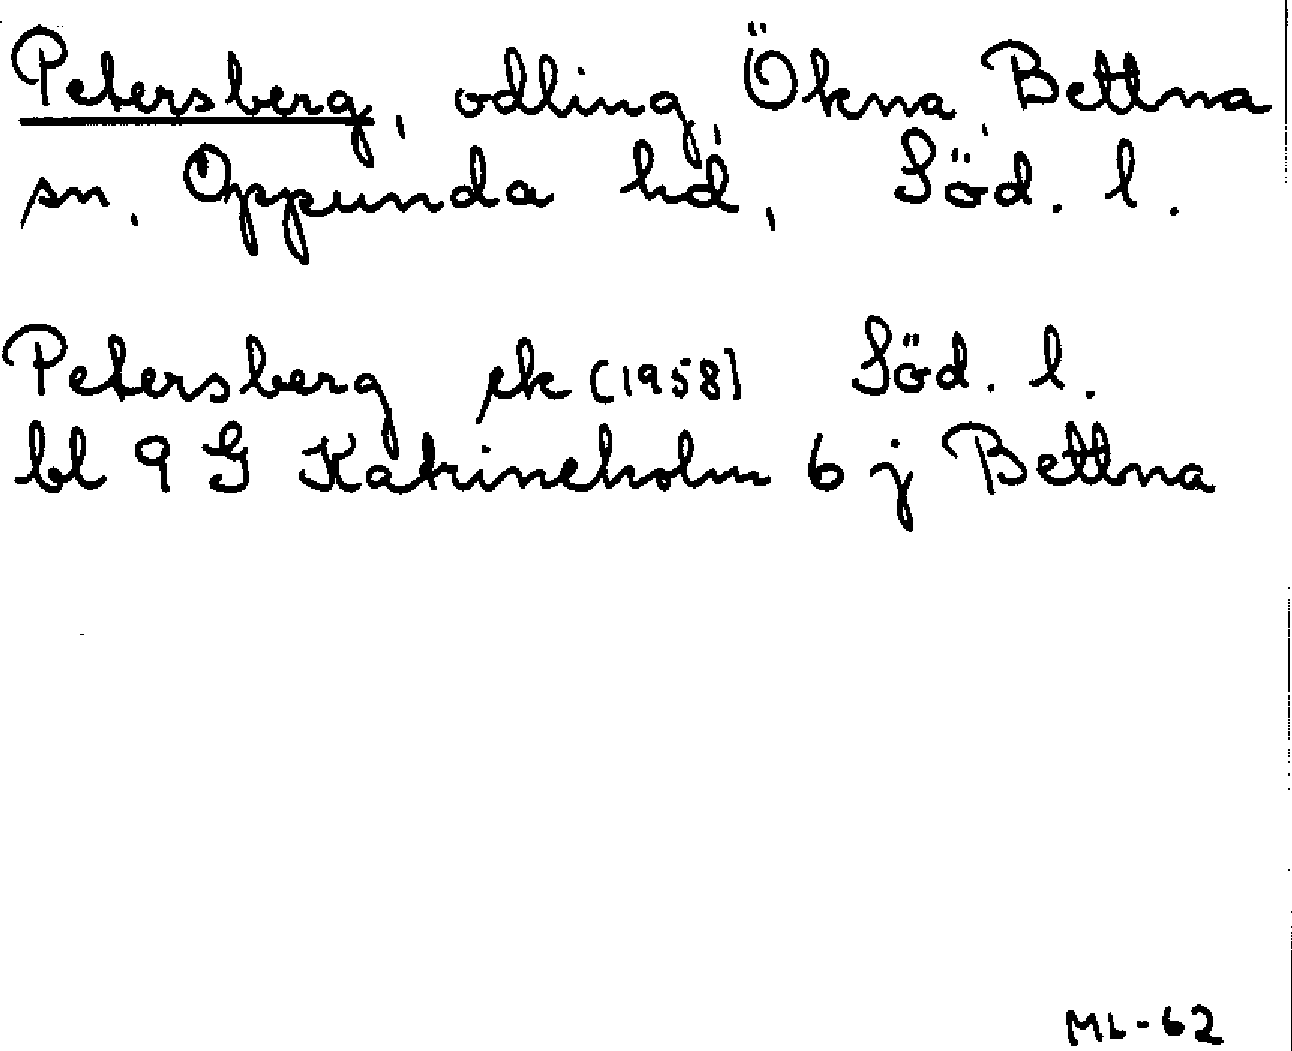 Petersberg, odling, Ökna, Bettna
sn, Oppunda hd, Söd. l.
Petersberg ek (1958) Söd. l.
bl 9 G Katrineholm 6 j Bettna
ML-62